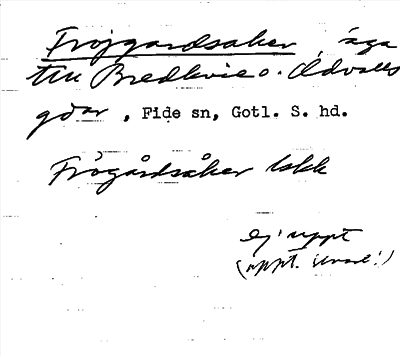 Fröjgardsaker, äga
till Bredkvie o. Odvalls
gdar, Fide sn, Gotl. S. hd.
Frögårdsåker lskk
ej uppt
(uppt.